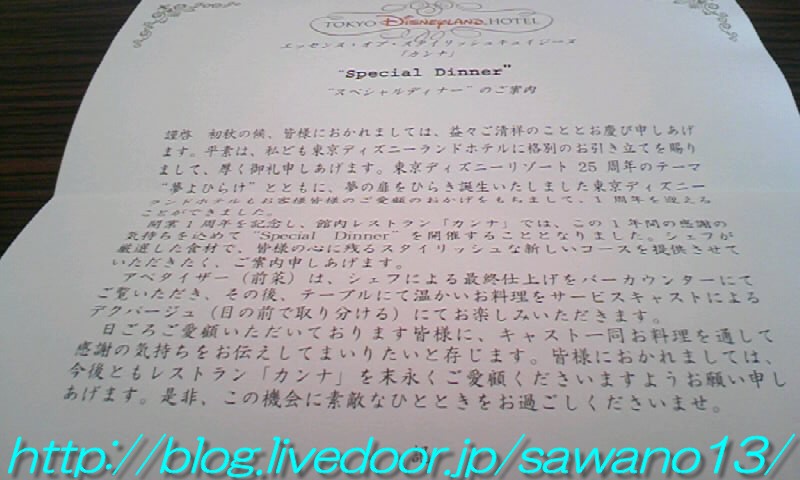 TOKYO DISNEYLAND HOTEL
エッセンス・オブ・スタイリッシュキュイジーヌ
「カンナ」
"Special Dinner"
"スペシャルディナー"のご案内
謹啓 初秋の候、皆様におかれましては、益々ご清祥のこととお慶び申しあげ
ます。平素は、私ども東京ディズニーランドホテルに格別のお引き立てを賜り
まして、厚く御礼申しあげます。東京ディズニーリゾート 25 周年のテーマ
"夢よひらけ"とともに、夢の扉をひらき誕生いたしました東京ディズニー
ランドホテルもお客様皆様のご愛顧のおかげをもちまして、1 周年を迎える
ことができました。
開業 1 周年を記念し、館内レストラン「カンナ」では、この 1 年間の感謝の
気持ちを込めて "Special Dinner" を開催することとなりました。シェフが
厳選した食材で、皆様の心に残るスタイリッシュな新しいコースを提供させて
いただきたく、ご案内申しあげます。
アペタイザー（前菜）は、シェフによる最終仕上げをバーカウンターにて
ご覧いただき、その後、テーブルにて温かいお料理をサービスキャストによる
デクパージュ（目の前で取り分ける）にてお楽しみいただきます。
日ごろご愛顧いただいております皆様に、キャスト一同お料理を通して
感謝の気持ちをお伝えしてまいりたいと存じます。皆様におかれましては、
今後ともレストラン「カンナ」を末永くご愛顧くださいますようお願い申し
あげます。是非、この機会に素敵なひとときをお過ごしくださいませ。
記
http://blog.livedoor.jp/sawano13/